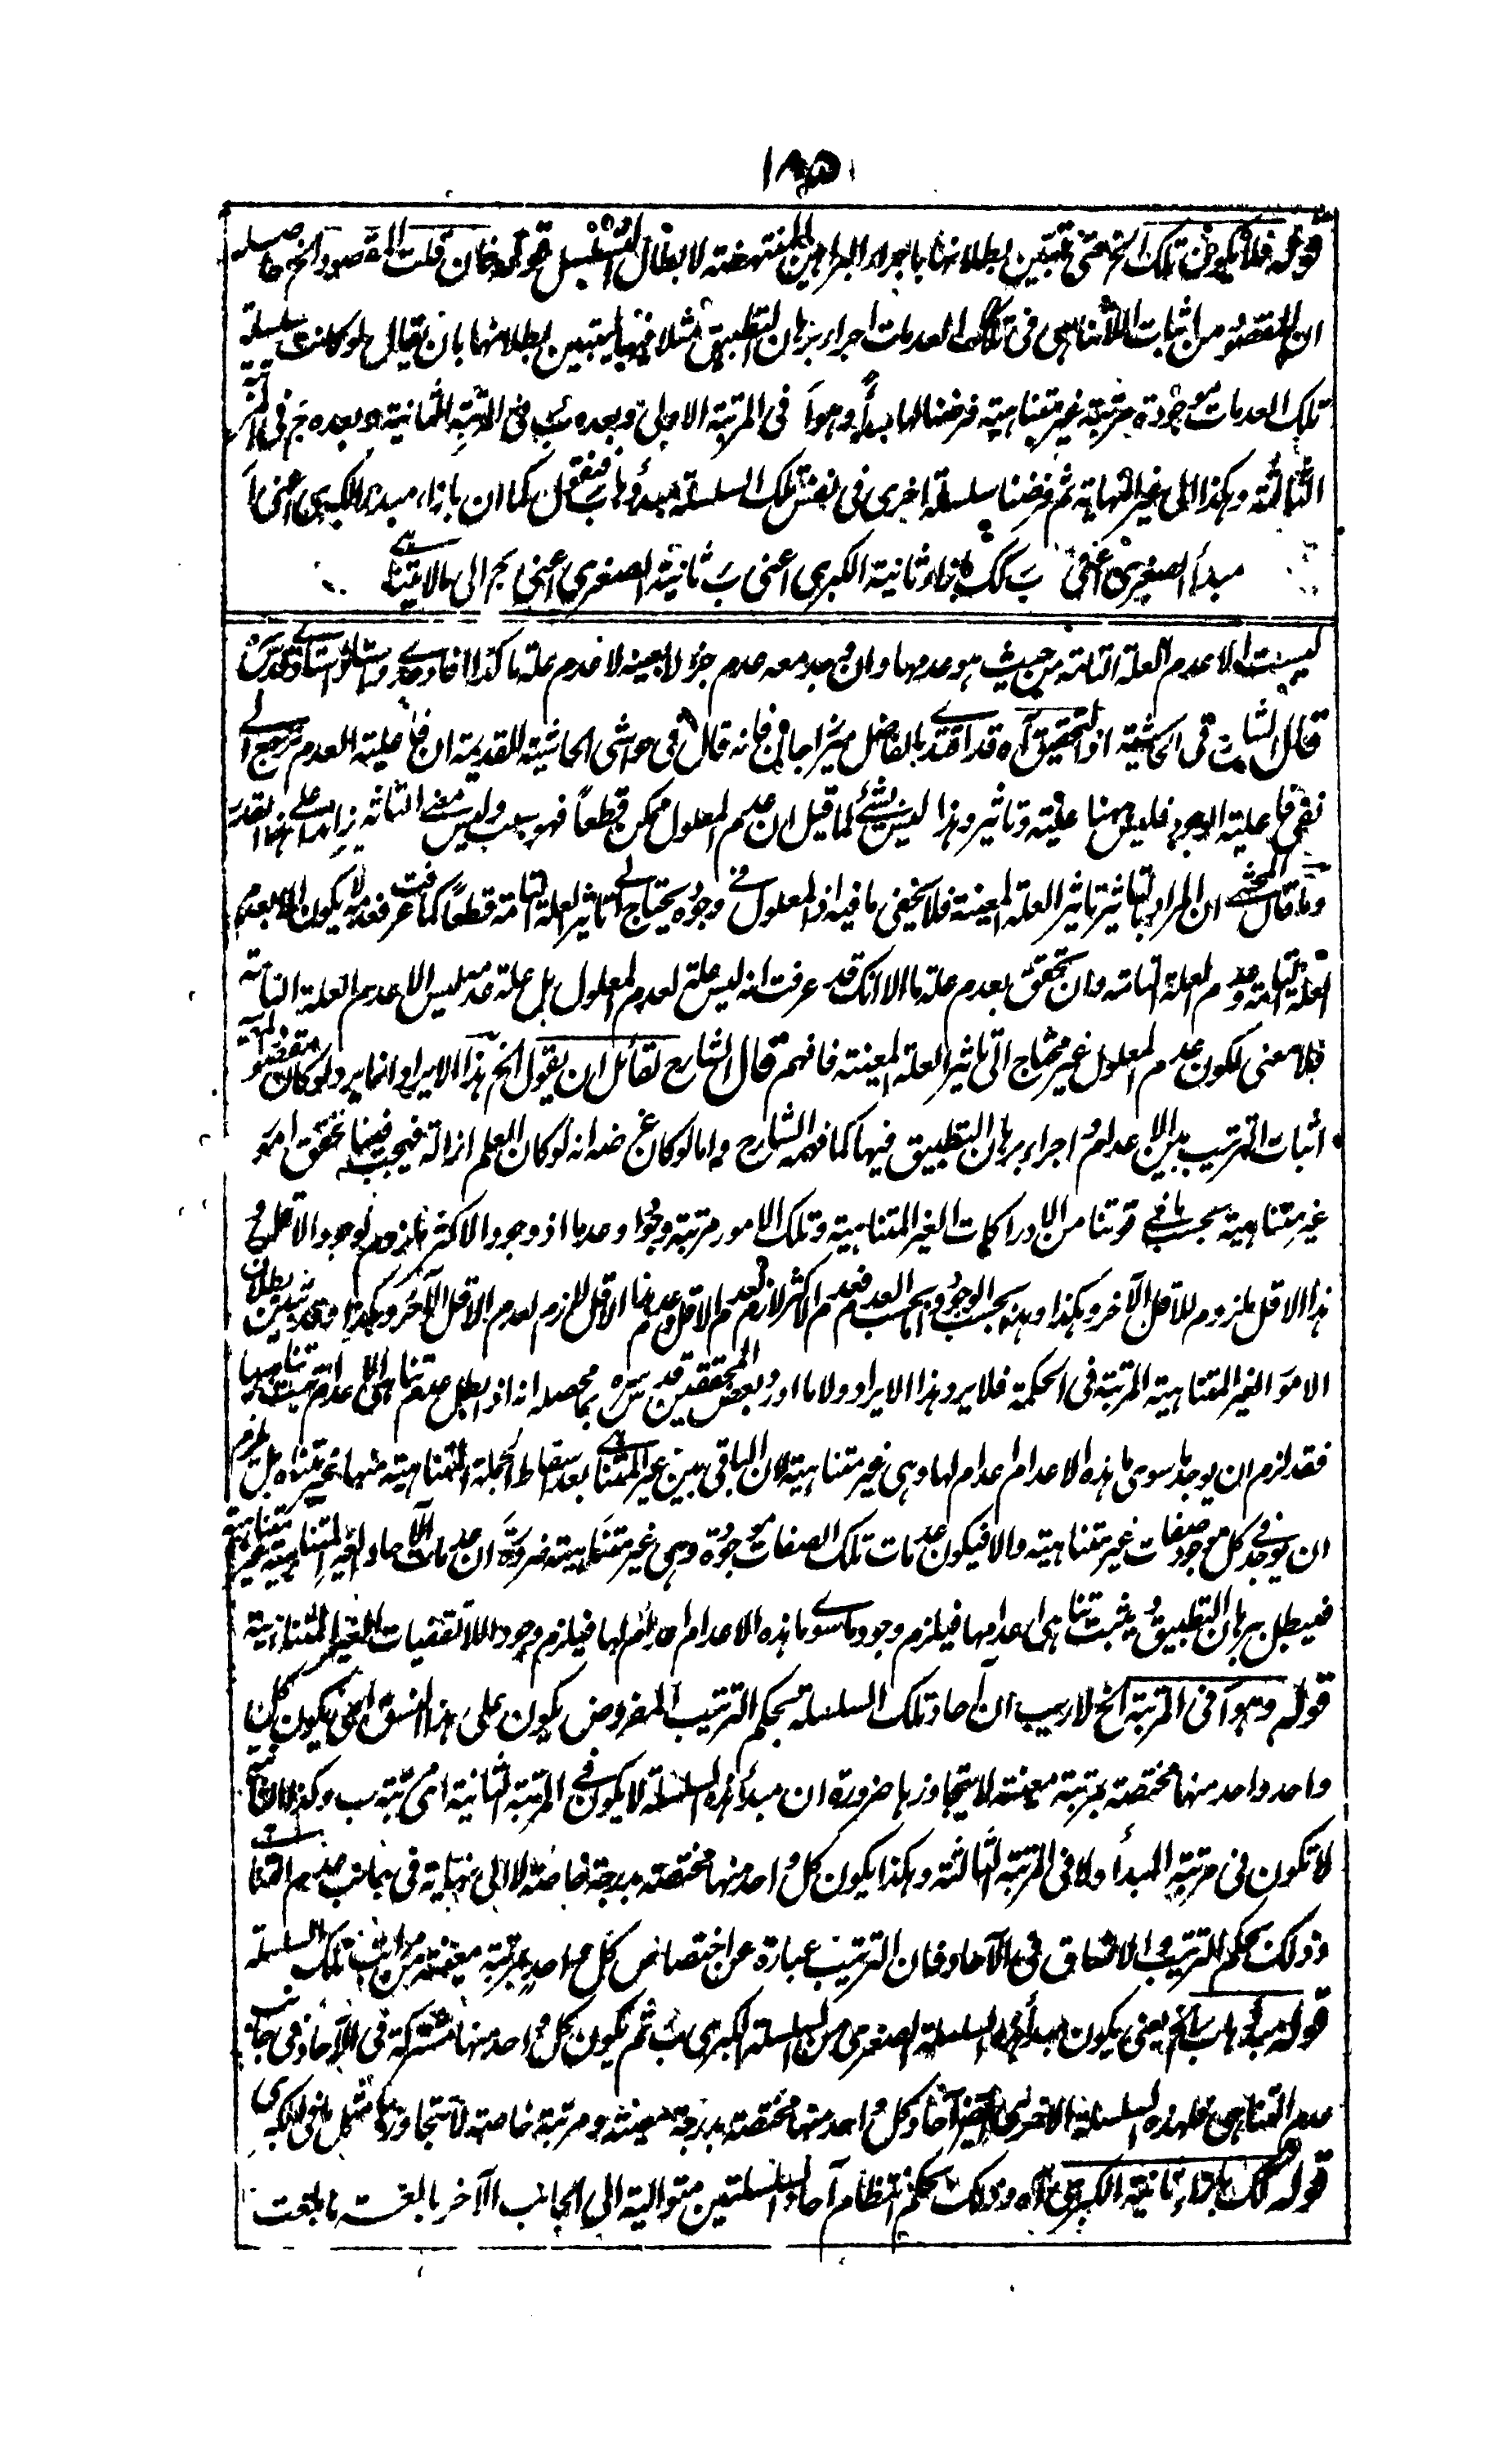 ١٨٥
قوله فلا يكون تلك الخ حتى يتبين بطلانها باجراء البراهين المنتهضة لابطال التسلسل قوله فان قلت المقصود الخ حاصله
ان المقصود من اثبات اللاتناهى فى تلك العدمات اجراء برهان التطبيق مثلا فيها ليتبين بطلانها بان يقال لو كانت سلسلة
تلك العدمات موجودة مرتبة غير متناهية فرضنا لها مبدأ وهو آ فى المرتبة الاولى وبعده ب فى المرتبة الثانية وبعده ج فى المرتبة
الثالثة وهكذا الى غير النهاية ثم فرضنا سلسلة اخرى فى نفس تلك السلسلة مبدؤها ب فنقول كما ان بازاء مبدء الكبرى اعنى آ
مبدأ الصغرى اعنى ب كك بازاء ثانية الكبرى اعنى ب ثانية الصغرى اعنى ج الى مالا يتناهى
ليست الا عدم العلة التامة من حيث هو عدمها وان وجد معه عدم جزء لا بعينه لا عدم علة ما كذا افاد
قال الشارح فى الحاشية اذ التحقيق آه قد اقتدى بالفاضل ميرزا جان فانه قال فى حواشى الحاشية القديمة ان فاعلية العدم ترجع الى
نفى فاعلية الوجود فليس ههنا علية وتاثير وهذا ليس بشئ لما قيل ان عدم المعلول ممكن قطعاً فهو بسبب وليس معنى التاثير زائدا على هذا القدر
وما قال المحشى ان المراد بالتاثير تاثير العلة المعينة فلا يخفى ما فيه اذ المعلول فى وجوده يحتاج الى تاثير العلة التامة قطعاً كما عرفت فعدمه لا يكون الا بعدم
العلة التامة وعدم العلة التامة وان تحقق بعدم علة ما الا انك قد عرفت انه ليس علة لعدم المعلول بل علة عدمه ليس الا عدم العلة التامة
فلا معنى لكون عدم المعلول غير محتاج الى تاثير العلة المعينة فافهم قال الشارح لقائل ان يقول الخ هذا الايراد انما يرد لو كان مقصوده
اثبات الترتيب بين الاعدام و اجراء برهان التطبيق فيها كما فهمه الشارح و اما لو كان غرضه انه لو كان العلم ازالة فيجب فينا تحقق امور
غير متناهية بحسب ما فى قوتنا من الادراكات الغير المتناهية وتلك الامور مرتبة وجودا وعدما اذ وجود الاكثر ملزوم لوجود الاقل و
هذا الاقل ملزوم للاقل الآخر وهكذا وهذا بحسب الوجود واما بحسب العدم فعدم الاكثر لازم لعدم الاقل وعدم هذا الاقل لازم لعدم الاقل الآخر وهكذا وقد تبين بطلان
الامور الغير المتناهية المرتبة فى الحكمة فلا يرد هذا الايراد ولا ما اورد بعض المحققين قدس سره بما محصله انه اذ ابطل عدم تناهى الاعدام ثبت تناهيها
فقد لزم ان يوجد ما سوى هذه الاعدام اعدام لها وهى غير متناهية لان الباقى من غير المتناهى بعد اسقاط الجملة المتناهية منها غير متناه بل يلزم
ان يوجد فى كل موجود صفات غير متناهية والا فيكون عدمات تلك الصفات موجودة وهى غير متناهية ضرورة ان عدمات الآحاد الغير المتناهية غير متناهية
فيبطل ببرهان التطبيق ويثبت تناهى اعدامها فيلزم وجود ما سوى هذه الاعدام اعدام لها فيلزم وجود اللاتقفيات الغير المتناهية
قوله وهو آ فى المرتبة الخ لاريب ان آحاد تلك السلسلة بحكم الترتيب المفروض يكون على هذا النسق اعنى يكون كل
واحد واحد منها مختصة بمرتبة معينة لا يتجاوزها ضرورة ان مبدأ هذه السلسلة لا يكون فى المرتبة الثانية اى مرتبة ب وكذا الثانية
لا تكون فى مرتبة المبدأ ولا فى المرتبة الثالثة وهكذا يكون كل واحد منها مختصة بدرجة خاصة لا الى نهاية فى جانب عدم التناهى
وذلك بحكم الترتيب والاتساق فى الآحاد فان الترتيب عبارة عن اختصاص كل واحد بمرتبة معينة من مراتب تلك السلسلة
قوله مبدؤها ب الخ يعنى يكون مبدأ هذه السلسلة الصغرى من السلسلة الكبرى ب ثم يكون كل واحد منها مشتركة فى الآحاد فى جانب
عدم التناهى فلهذه السلسلة الاخرى ايضا آحاد كل واحد منها مختصة بدرجة معينة ومرتبة خاصة لا تتجاوزها مثل ما فى الكبرى
قوله كك بازاء ثانية الكبرى آه وذلك بحكم انتظام آحاد السلسلتين متوالية الى الجانب الآخر بالغت ما بلغت